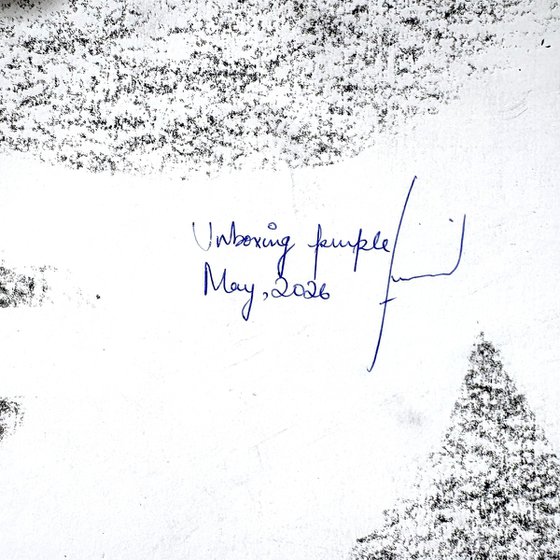 Unboxing purple
May, 2026